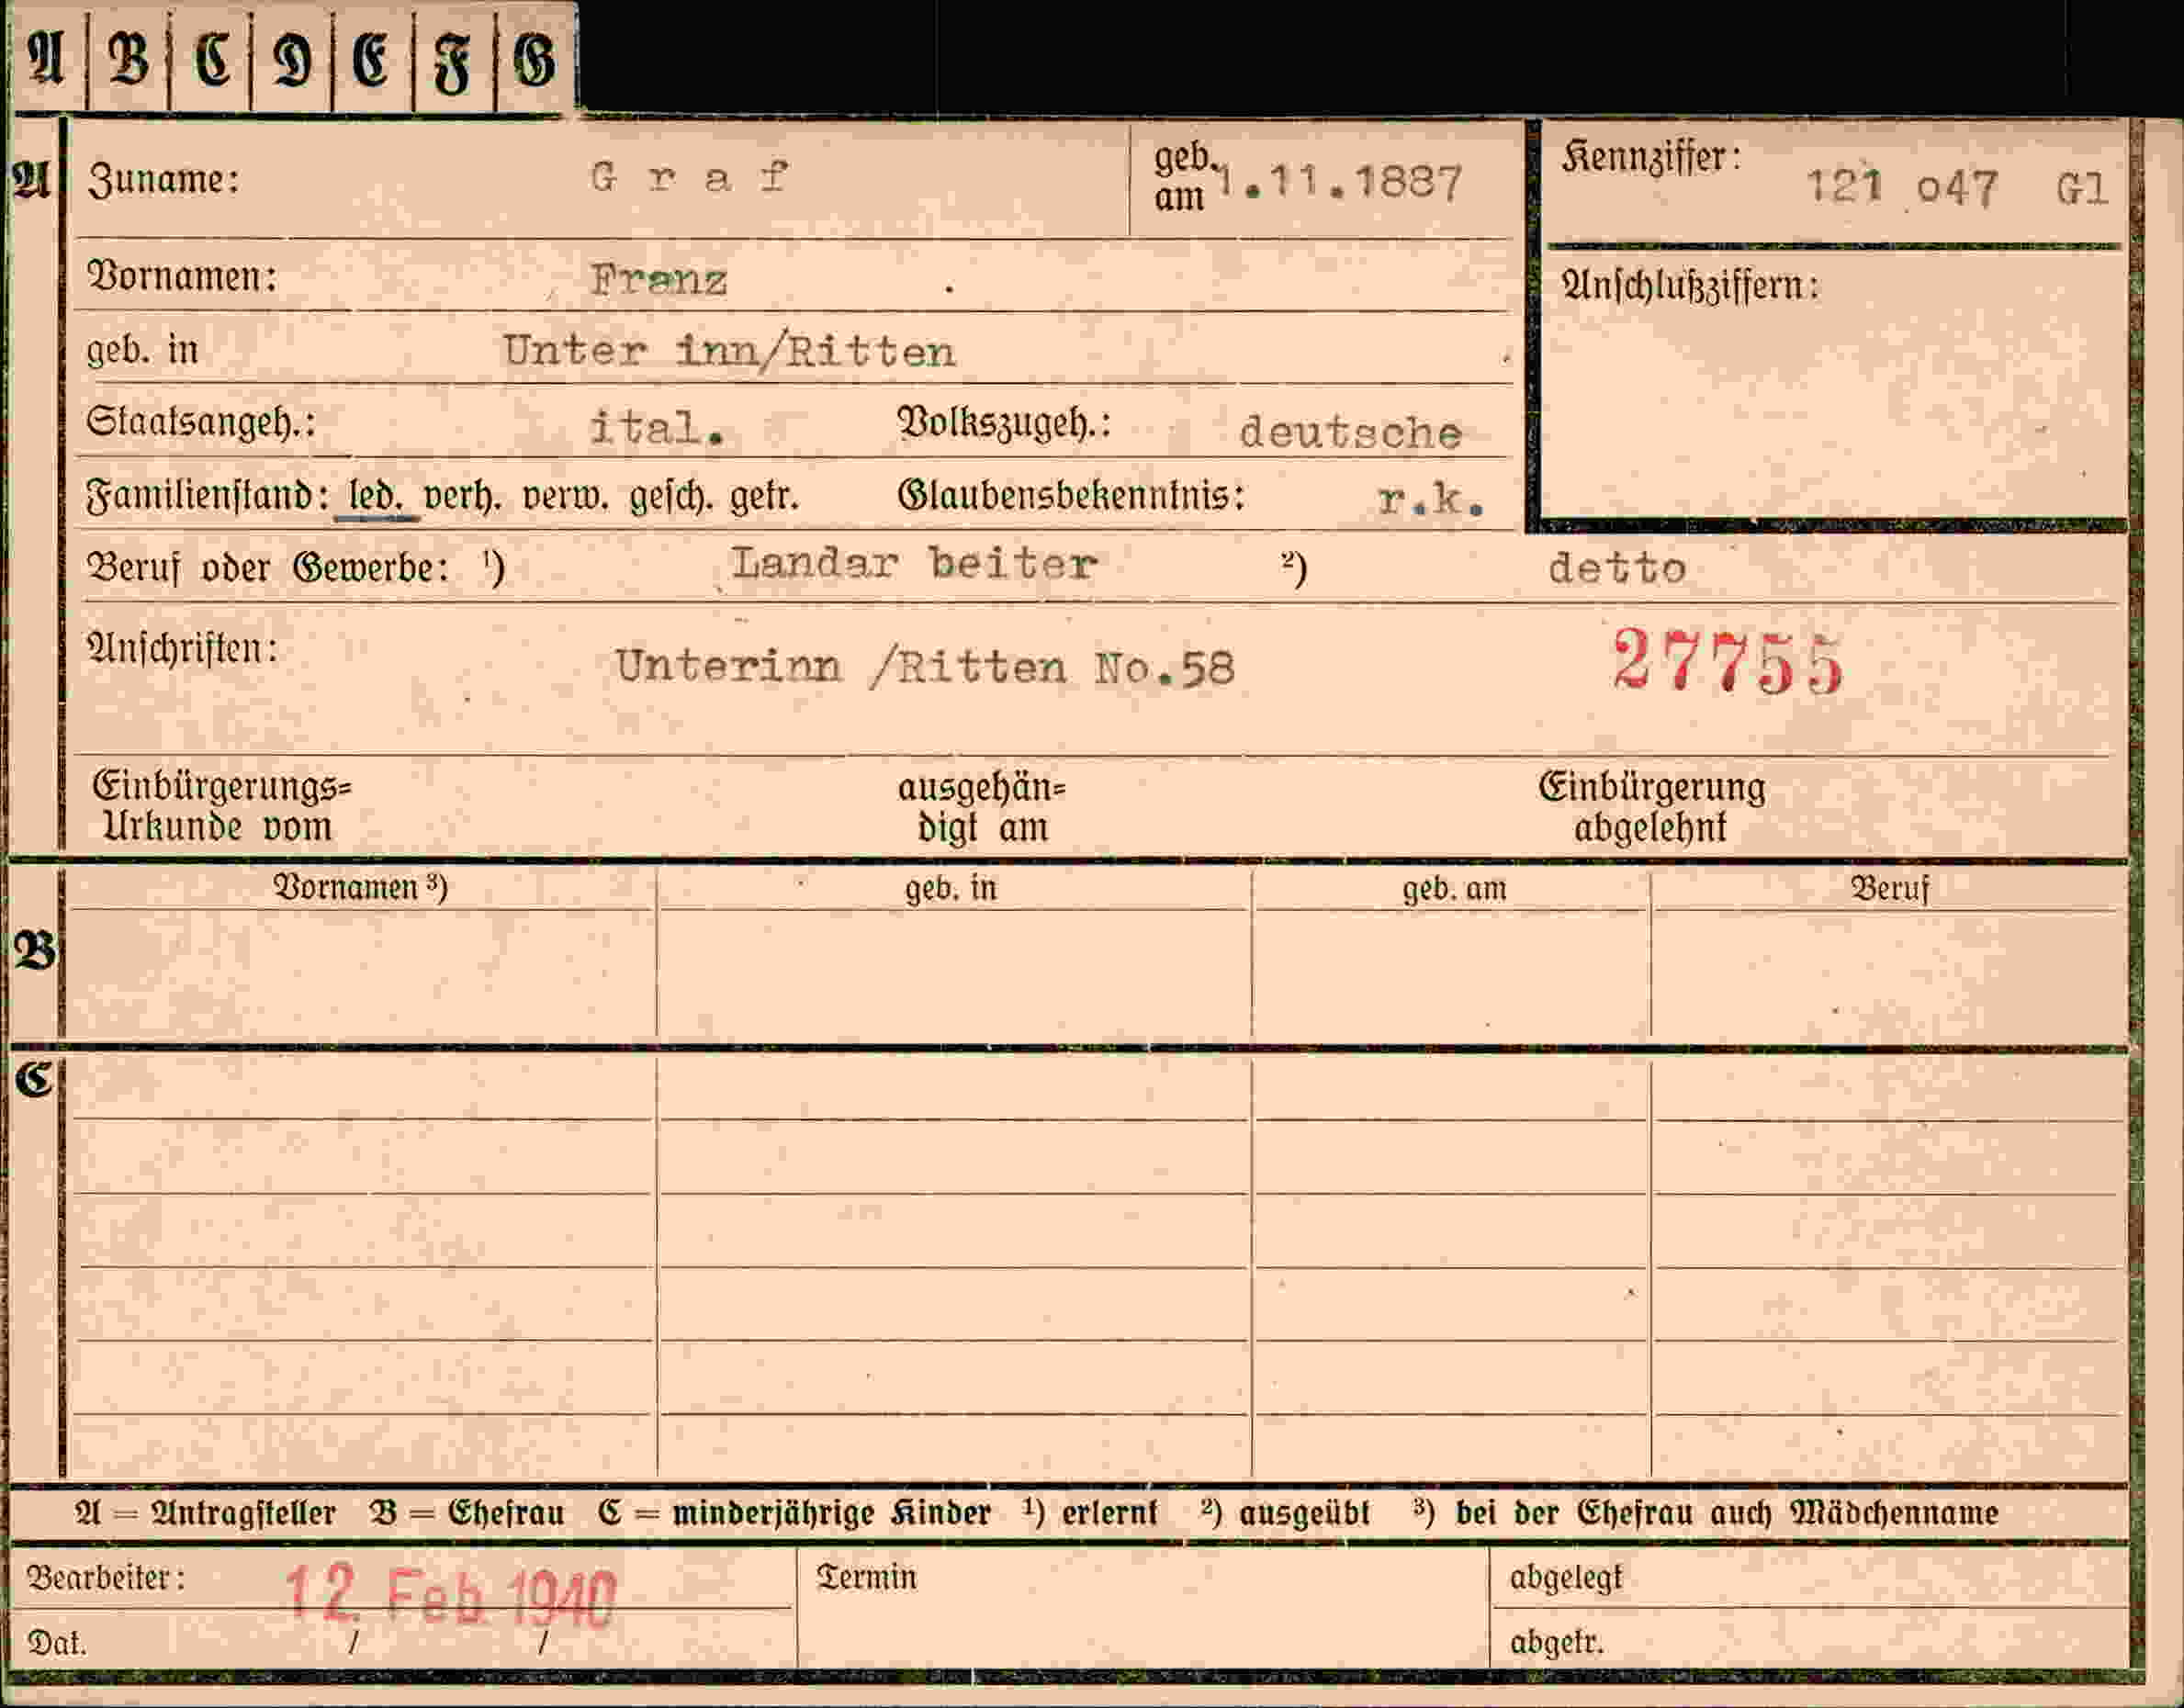 A B C D E F G
A Zuname: G r a f geb. am 1.11.1887 Kennziffer: 121 o47 Gl
Vornamen: Franz Anschlußziffern:
geb. in Unter inn/Ritten
Staatsangeh.: ital. Volkszugeh.: deutsche
Familienstand: led. verh. verw. gesch. getr. Glaubensbekenntnis: r.k.
Beruf oder Gewerbe: ¹) Landar beiter ²) detto
Anschriften: Unterinn /Ritten No.58 27755
Einbürgerungs= ausgehän= Einbürgerung
Urkunde vom digt am abgelehnt
Vornamen ³) geb. in geb. am Beruf
B
C
A = Antragsteller B = Ehefrau C = minderjährige Kinder ¹) erlernt ²) ausgeübt ³) bei der Ehefrau auch Mädchenname
Bearbeiter: 12. Feb. 1940 Termin abgelegt
Dat. / / abgetr.